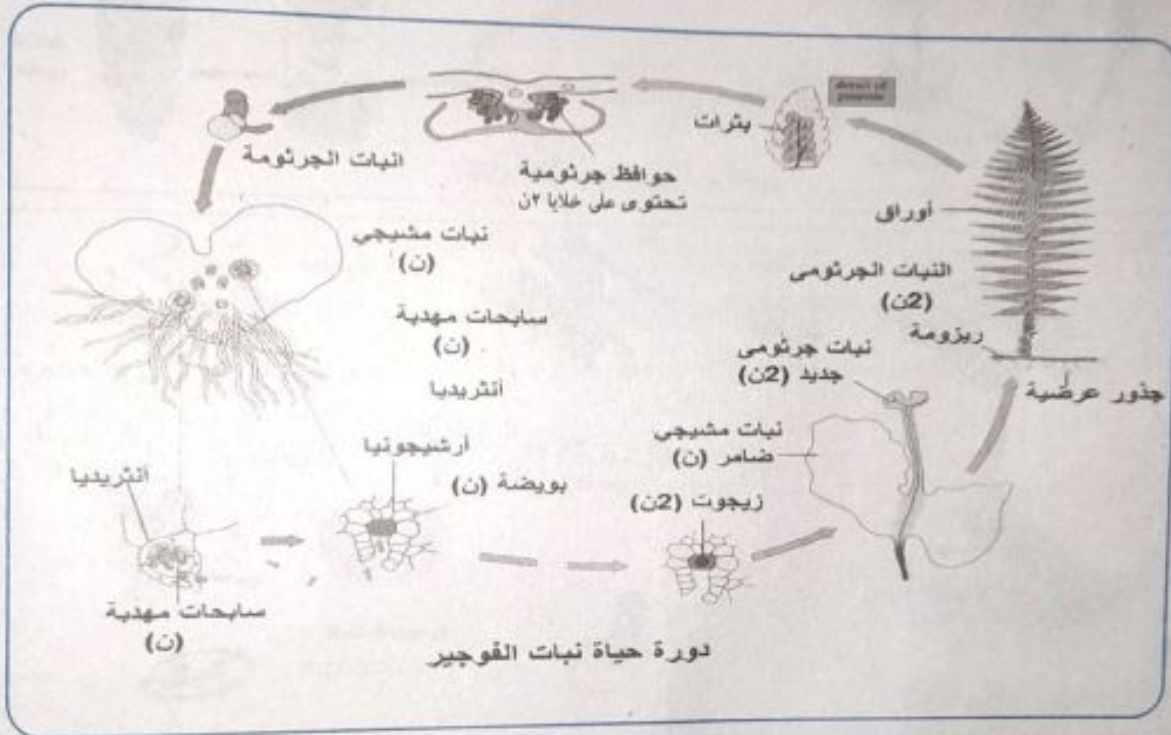 بثرات
حوافظ جرثومية
تحتوى على خلايا ٢ن
انبات الجرثومة
أوراق
النبات الجرثومى
(2ن)
ريزومة
جذور عرضية
نبات مشيجي
(ن)
سابحات مهدبة
(ن)
أنثريديا
نبات جرثومى
جديد (2ن)
نبات مشيجي
ضامر (ن)
زيجوت (2ن)
أرشيجونيا
بويضة (ن)
أنثريديا
سابحات مهدبة
(ن)
دورة حياة نبات الفوجير